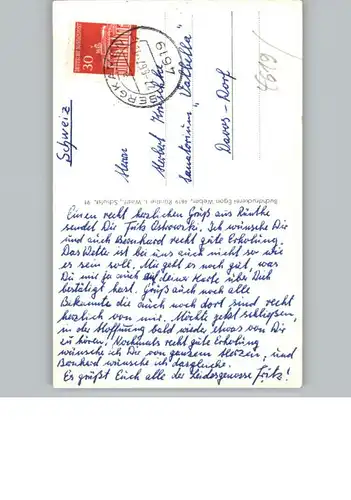 DEUTSCHE BUNDESPOST
30
4619
4619
Schweiz
Herrn
Herbert
Sanatorium "Valbella"
Davos-Dorf
Buchdruckerei Egon Weber, 4619 Rünthe i. Westf., Schulstr. 91
Einen recht herzlichen Gruß aus Rünthe
sendet Dir Fritz Ostrowski. Ich wünsche Dir
und auch Bernhard recht gute Erholung.
Das Wetter ist bei uns auch nicht so wie
es sein soll. Mir geht es noch gut, was
Du mir ja auch auf deiner Karte über Dich
bestätigt hast. Grüß auch noch alle
Bekannte die auch noch dort sind recht
herzlich von mir. Möchte jetzt schließen,
in der Hoffnung bald wieder etwas von Dir
zu hören. Nochmals recht gute Erholung
wünsche ich Dir von ganzem Herzen, und
Bernhard wünsche ich dasgleiche.
Es grüßt Euch alle der Leidesgenosse Fritz!